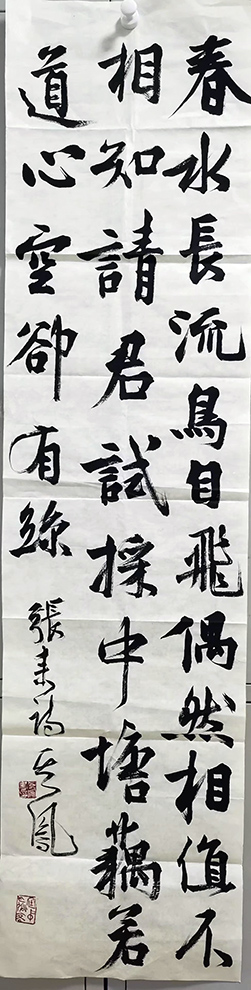 春水長流鳥自飛偶然相值不
相知請君試採中塘藕若
道心空卻有絲
張耒詩